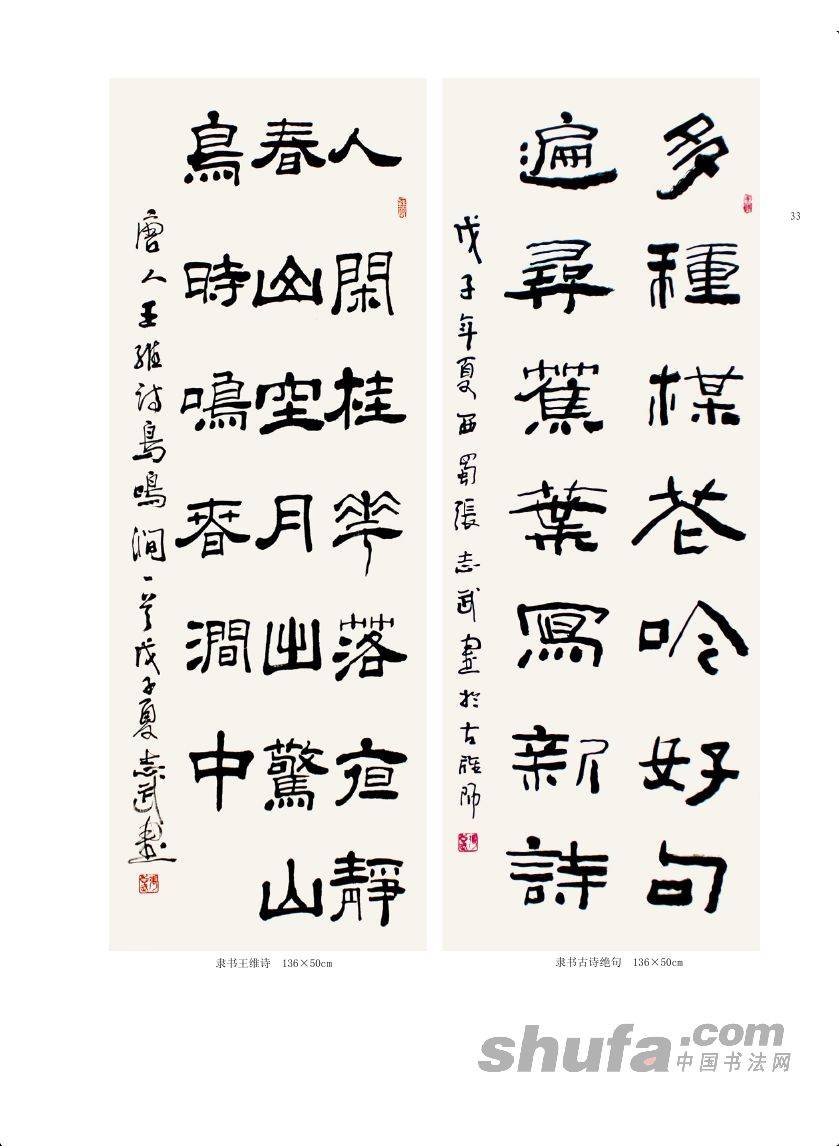 多種楳花吟好句
遍尋蕉葉寫新詩
戊子年夏西蜀張志武書於古雒
隶书古诗绝句 136×50cm
人閑桂華落夜靜
春山空月出驚山
鳥時鳴春澗中
唐人王維诗鳥鳴澗一首戊子夏志武書
隶书王维诗 136×50cm
33
shufa.com
中国书法网